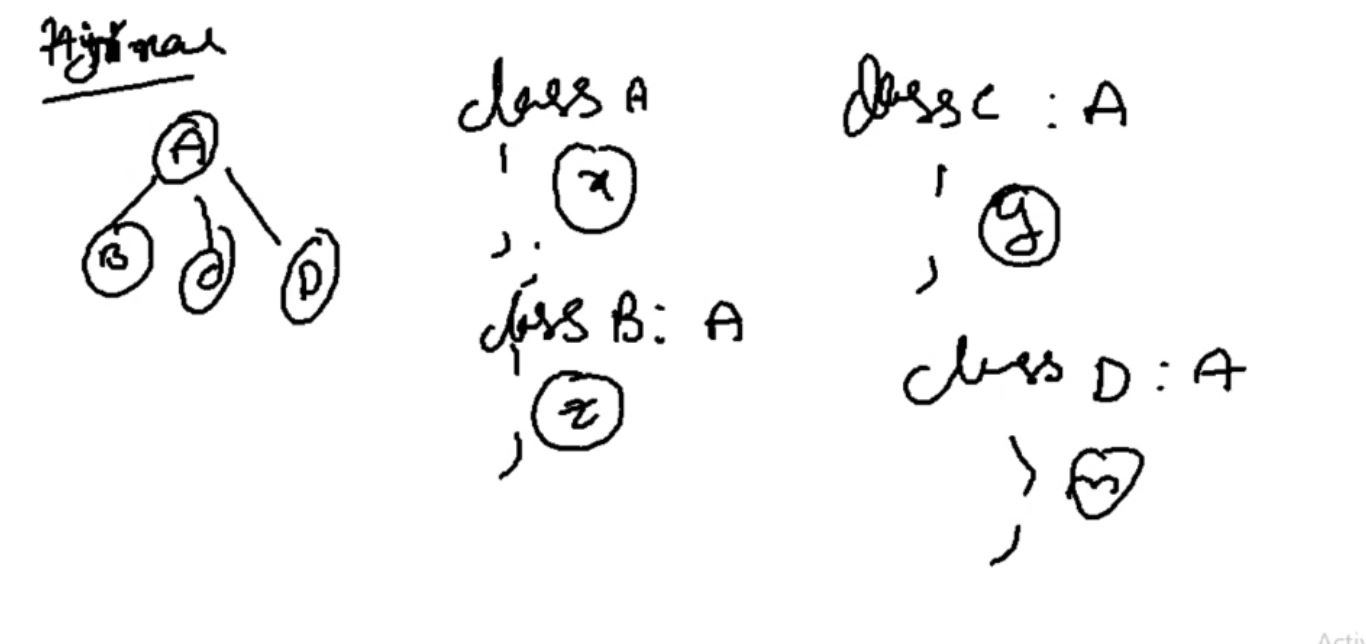 A
B C D
class A
x
class B : A
z
class C : A
y
class D : A
m
Activ